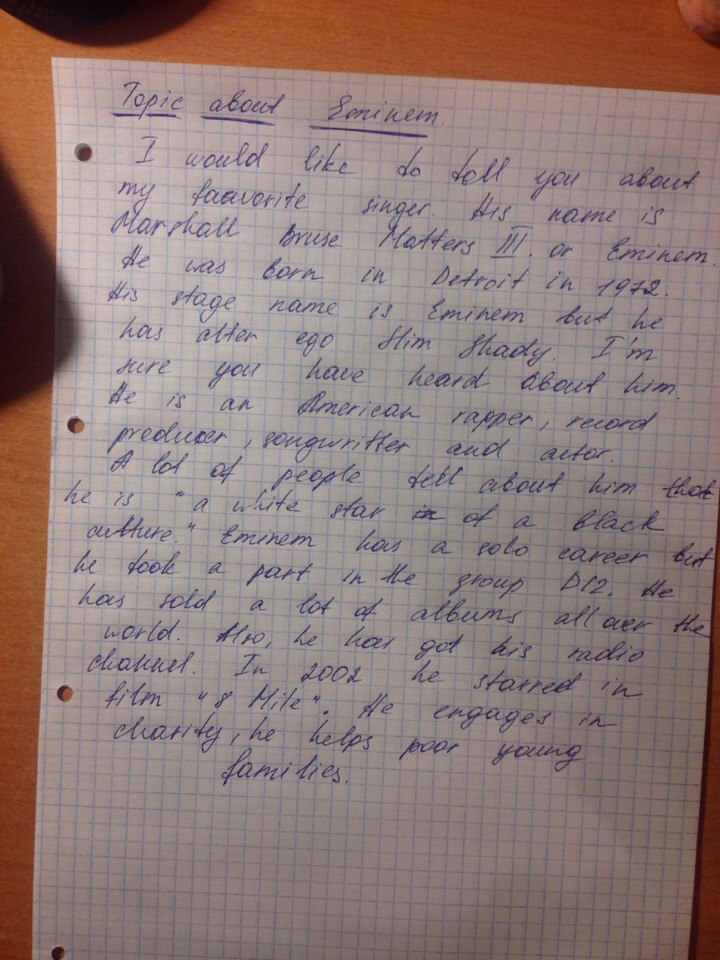 Topic about Eminem.
I would like to tell you about
my faavorite singer. His name is
Marshall Bruse Matters III. or Eminem.
He was born in Detroit in 1972.
His stage name is Eminem but he
has alter ego Slim Shady. I'm
sure you have heard about him.
He is an American rapper, record
producer, songwritter and actor.
A lot of people tell about him that
he is "a white star of a black
culture." Eminem has a solo career but
he took a part in the group D12. He
has sold a lot of albums all over the
world. Also, he has got his radio
channel. In 2002 he starred in
film "8 Mile". He engages in
charity, he helps poor young
families.